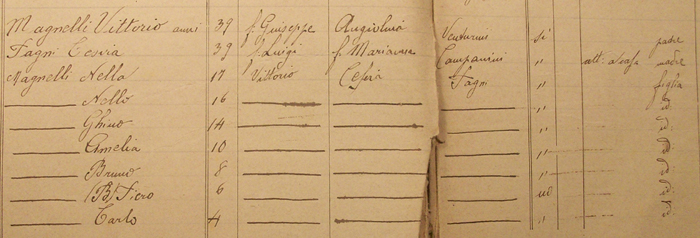 Magnelli Vittorio anni 39 f. Giuseppe Angiolina Venturini si padre
Fagni Cesira 39 f. Luigi f. Marianna Campanini " att. a casa madre
Magnelli Nella 17 Vittorio Cesira Fagni " figlia
Nello 16 " id.
Ghino 14 " id.
Amelia 10 " id.
Bruno 8 " id.
(B) Piero 6 no id.
Carlo 4 " id.